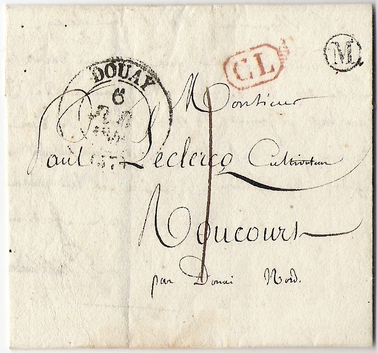 DOUAY
6
(57)
C.L.
M
Monsieur
Paul Leclercq Cultivateur
1
Noucourt
par Douai Nord.